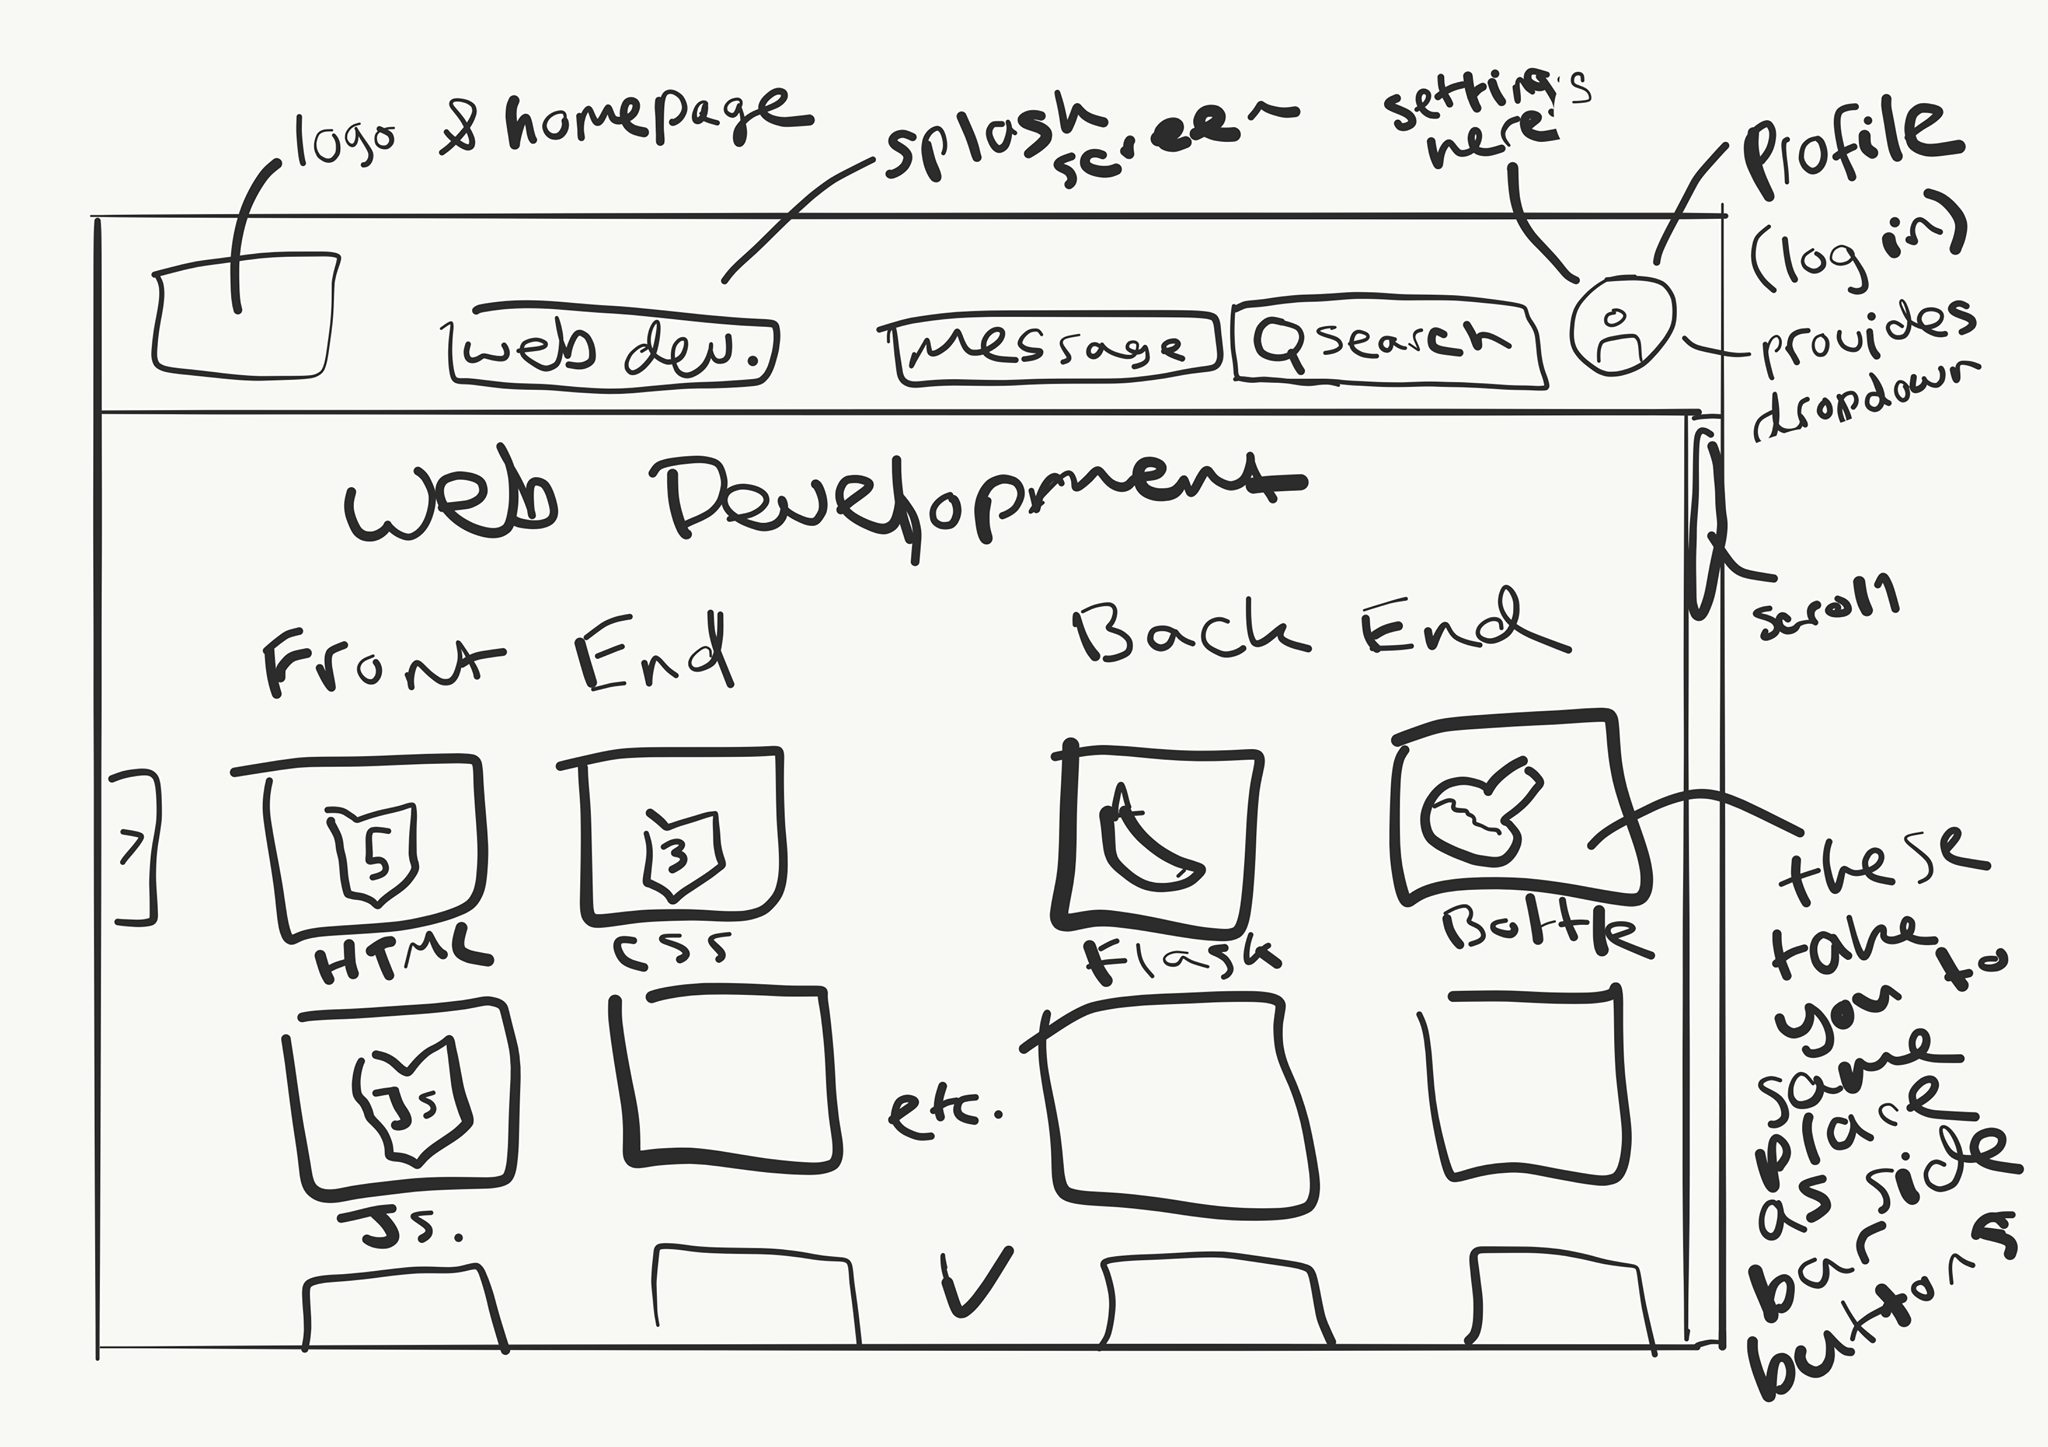 logo & homepage
splash
screen
settings
here
Profile
(log in)
provides
dropdown
web dev.
message
search
Web Development
scroll
Front End
Back End
>
5
3
HTML
CSS
Flask
Bottle
Js
etc.
Js.
these
take
you to
same
place
as side
bar
buttons